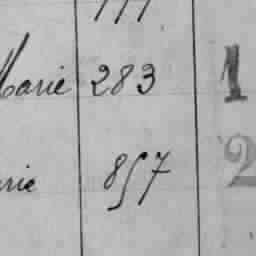 Marie 283 1
857 2